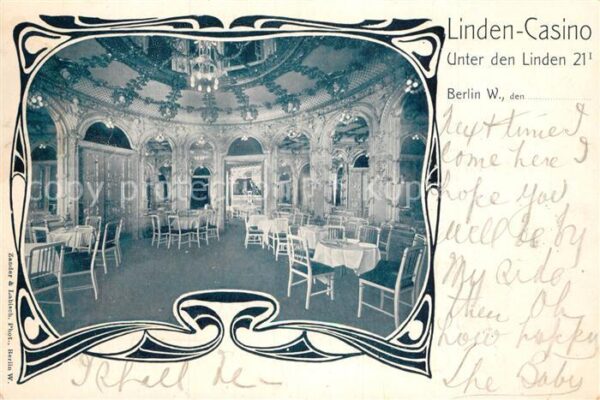 Linden-Casino
Unter den Linden 21I
Berlin W., den
Next time I
come here I
hope you
will be by
My side.
then Oh
how happy
I shall be -
The Baby
Zander & Labisch, Phot., Berlin W.
copy protection